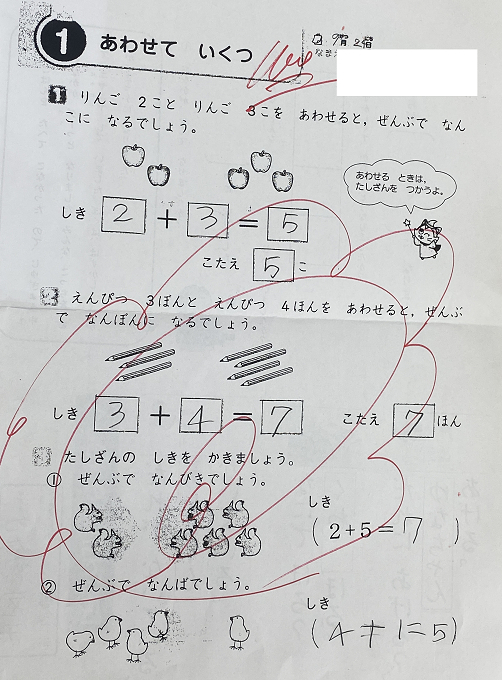 1 あわせて いくつ
1 りんご 2こと りんご 3こを あわせると，ぜんぶで なん
こに なるでしょう。
あわせる ときは，
たしざんを つかうよ。
しき 2 + 3 = 5
こたえ 5 こ
えんぴつ 3ぼんと えんぴつ 4ほんを あわせると，ぜんぶ
で なんぼんに なるでしょう。
しき 3 + 4 = 7 こたえ 7 ほん
たしざんの しきを かきましょう。
① ぜんぶで なんびきでしょう。
しき
( 2+5=7 )
② ぜんぶで なんばでしょう。
しき